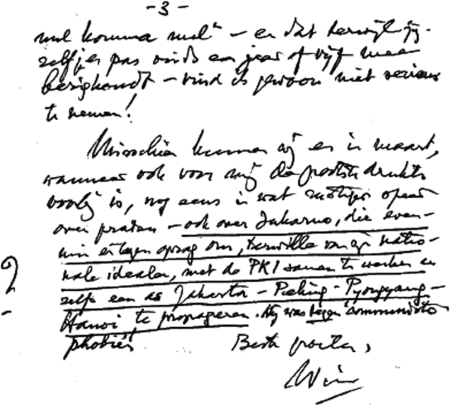 -3-
nul komma nul" - en dat terwijl jij-
zelf je pas sinds een jaar of vijf mee
bezighoudt - vind ik gewoon niet serieus
te nemen!
Misschien kunnen wij er in maart,
wanneer ook voor mij de grootste drukte
voorbij is, nog eens in wat rustiger
over praten - ook over Sukarno, die even-
min ertegen opzag om, terwille van zijn natio-
nale idealen, met de PKI samen te werken en
zelfs een as Jakarta - Peking - Pyongyang -
Hanoi, te propageren. Hij was tegen communisto
phobie!
?
Beste groeten,
Wim